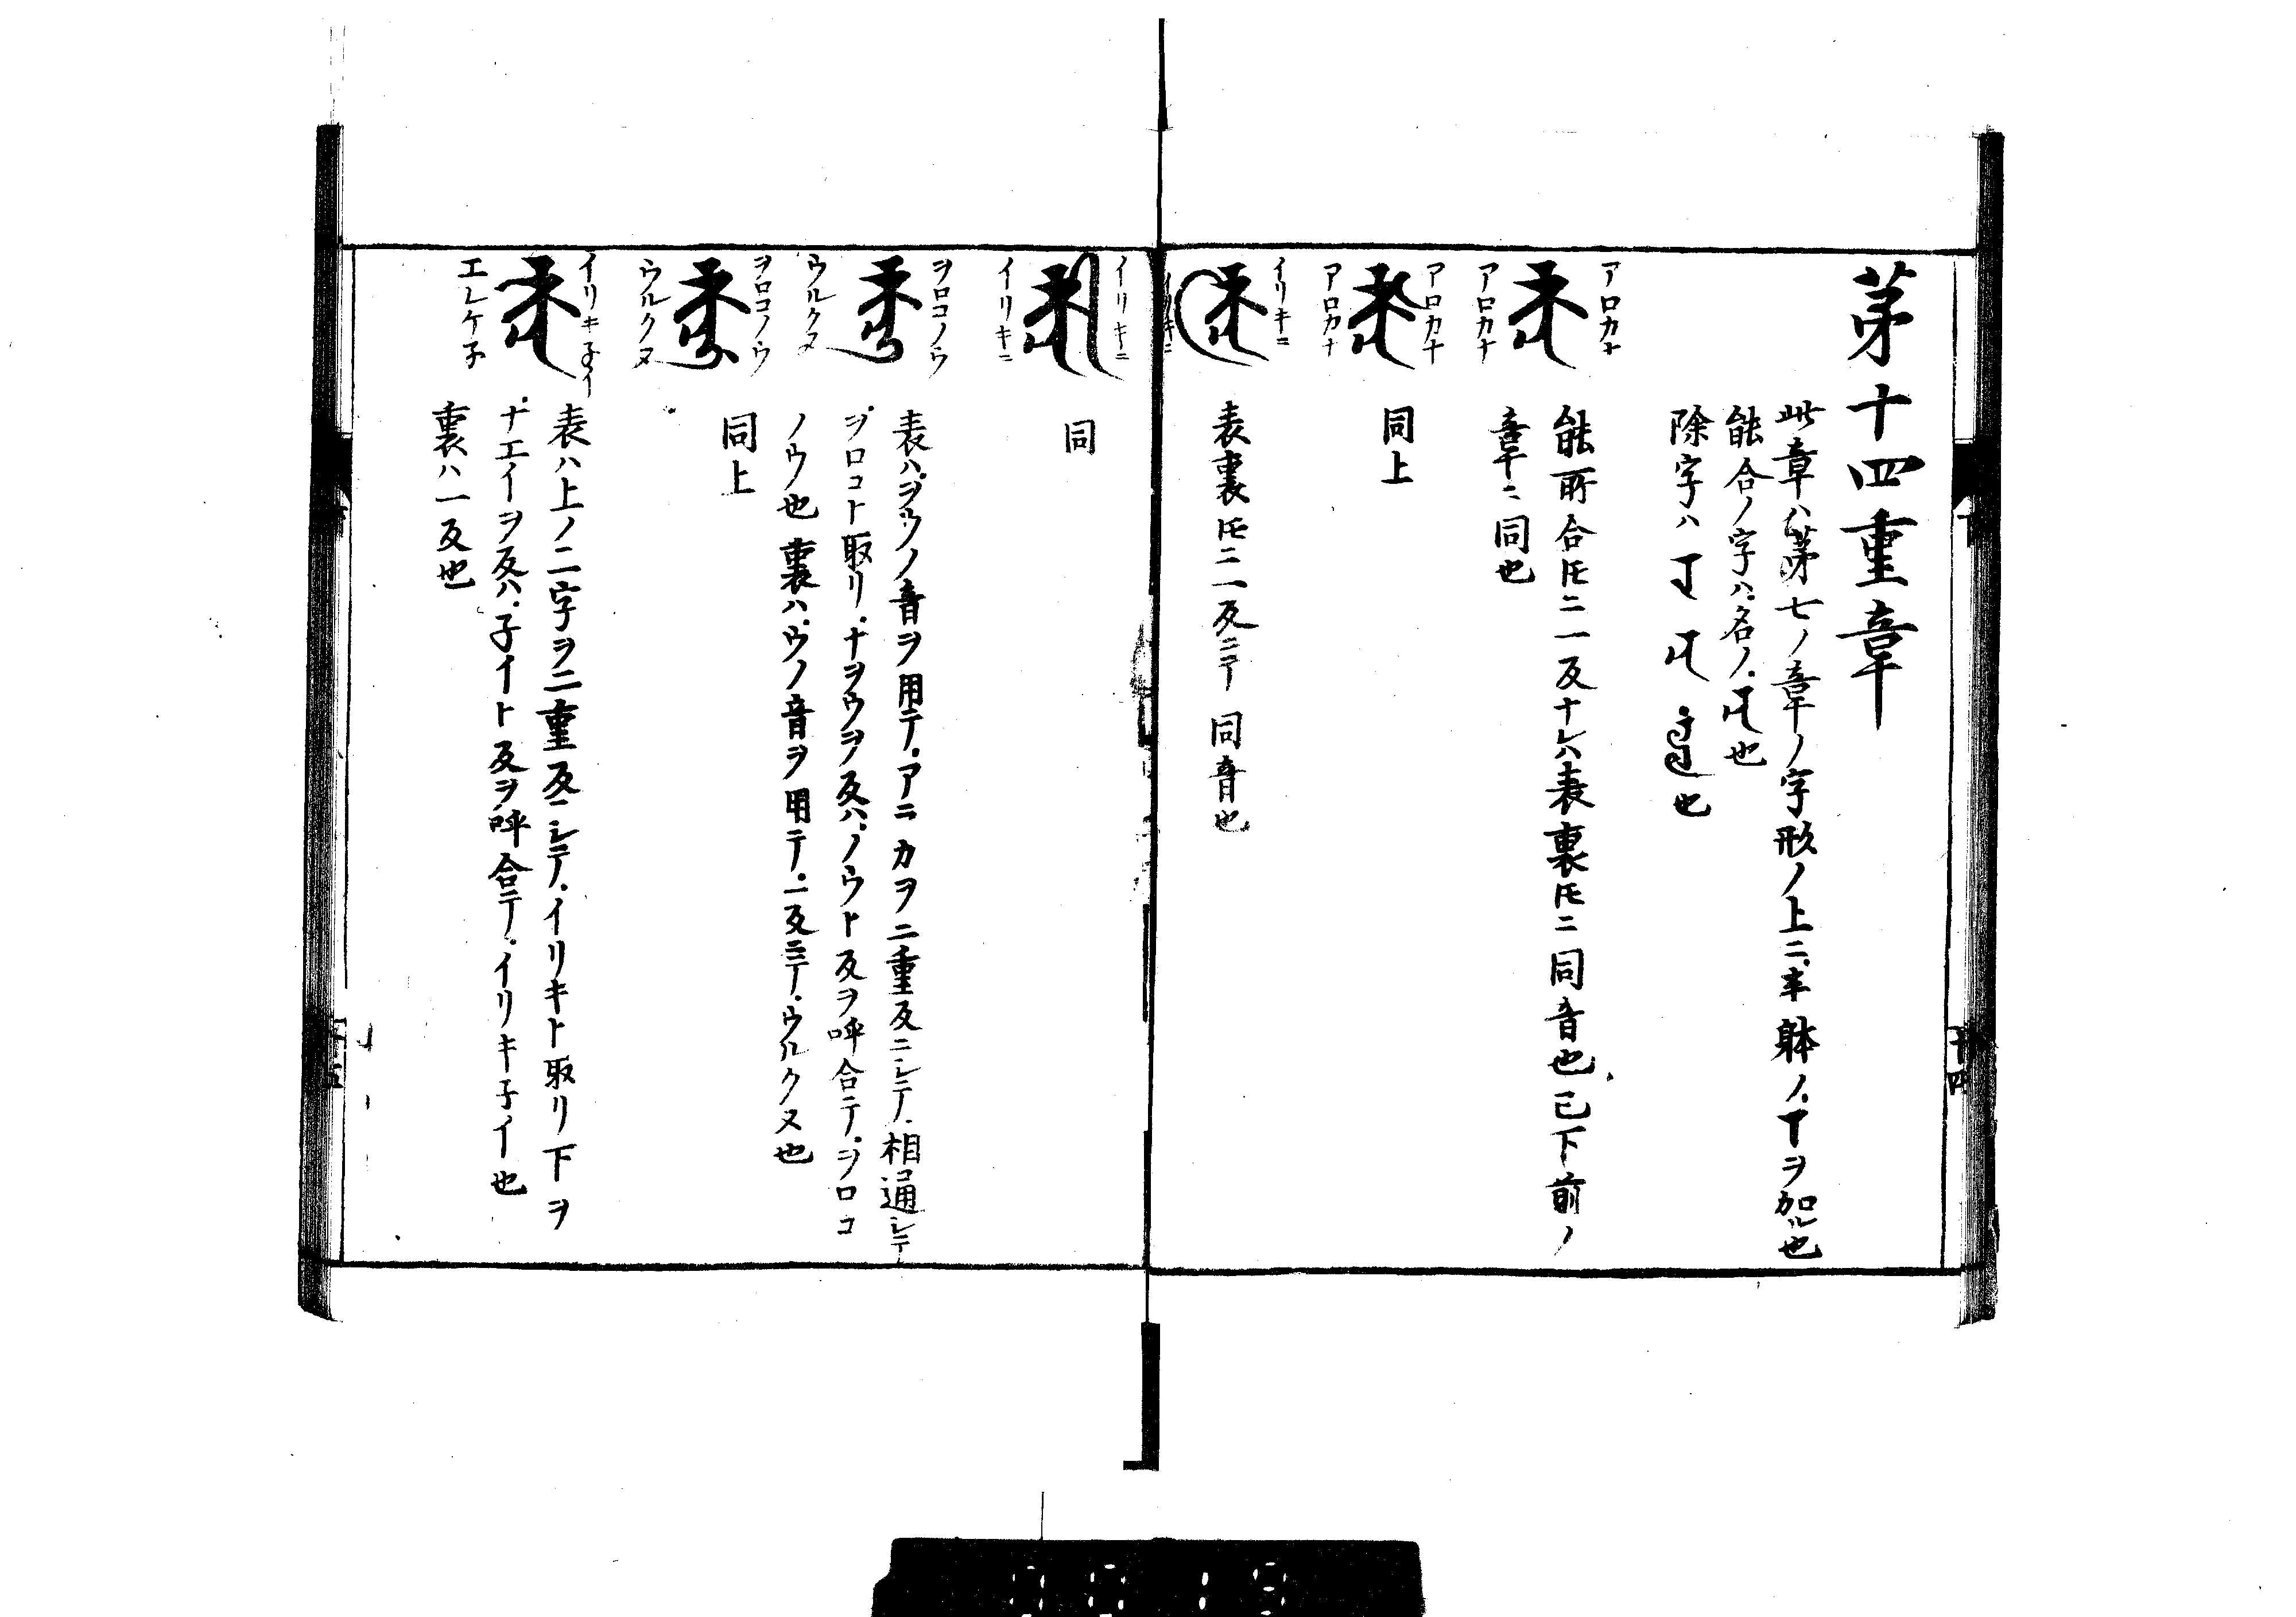 第十四重章
此章ハ第七ノ章ノ字形ノ上ニ半躰ノ ヲ加ル也
能合ノ字ハ名ノ 也
除字ハ 也
アロカナ
能所合氏ニ一反ナレハ表裏氏ニ同音也已下前ノ
章ニ同也
アロカナ
アロカナ
同上
アロカナ
イリキニ
表裏氏ニ一反ニテ同音也
イリキニ
イリキニ
同
イリキニ
ヲロコノウ
表ハヲウノ音ヲ用テアニカヲ二重反ニシテ相通シテ
ヲロコト取リナヲウヲ反ハノウト反ヲ呼合テヲロコ
ノウ也裏ハウノ音ヲ用テ一反ニテウルクヌ也
ウルクヌ
ヲロコノウ
同上
ウルクヌ
イリキ子イ
表ハ上ノ二字ヲ二重反ニシテイリキト取リ下ヲ
ナエイヲ反ハ子イト反ヲ呼合テイリキ子イ也
裏ハ一反也
エレケ子
十四